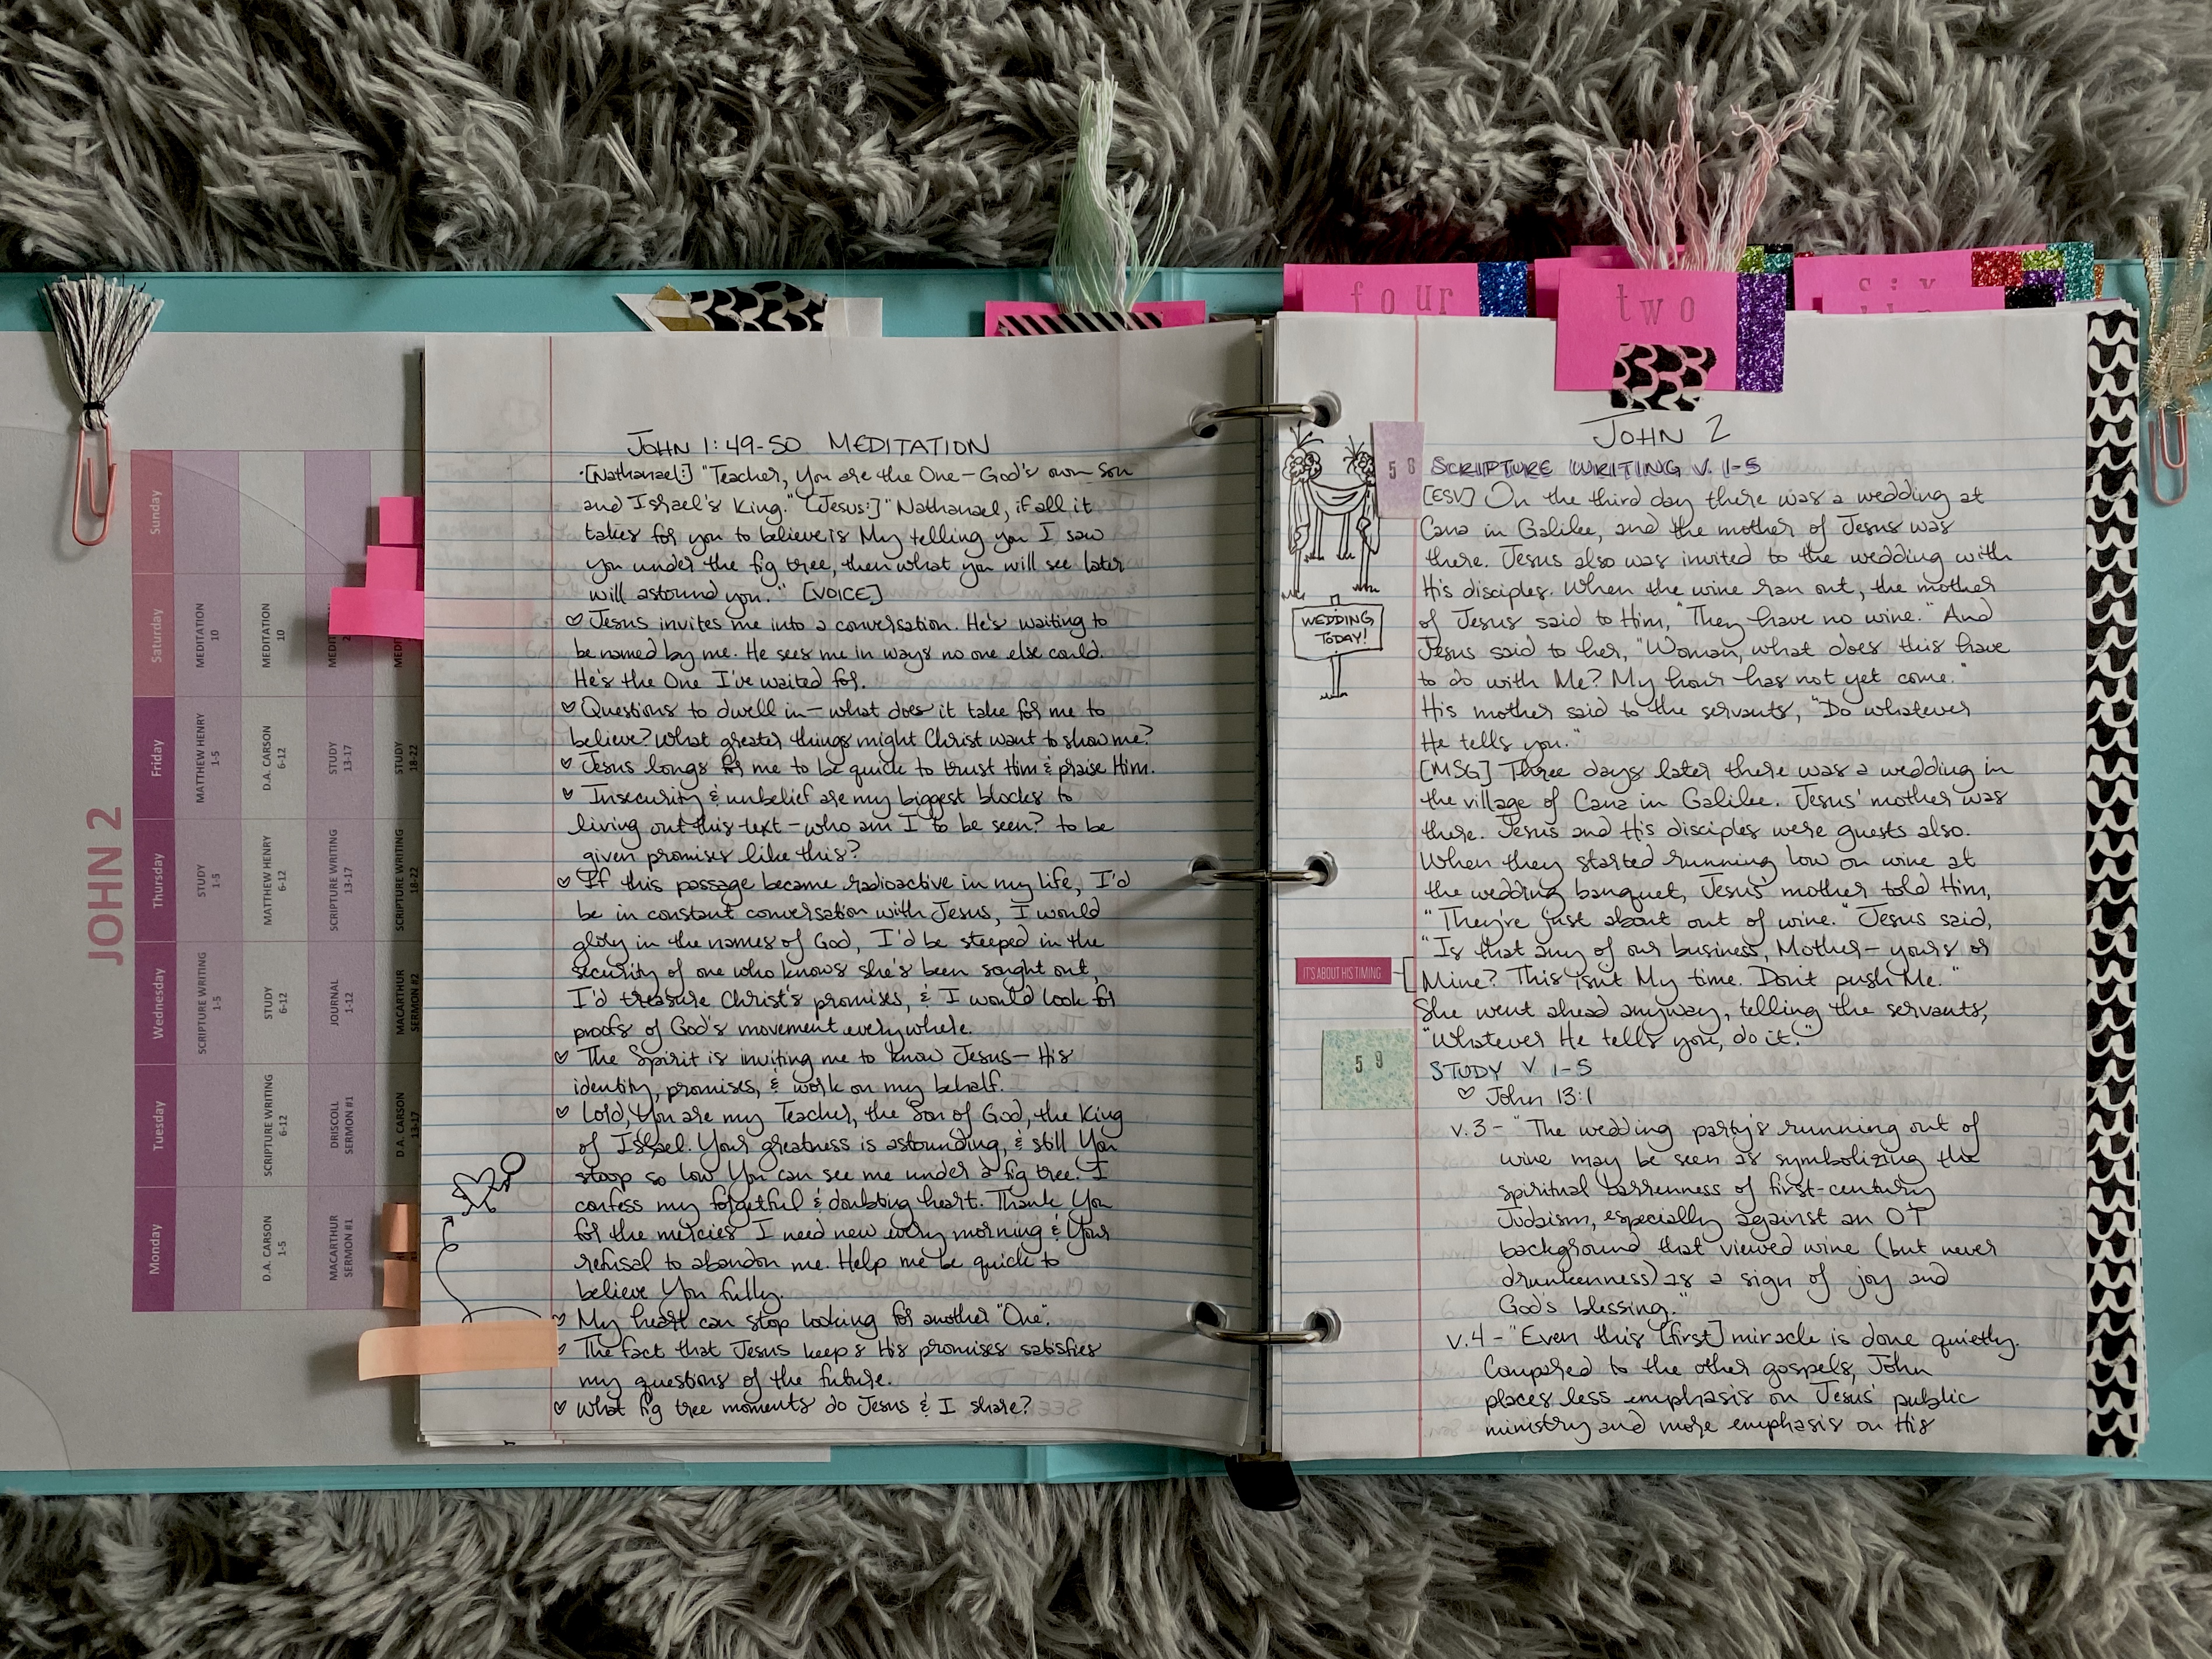 JOHN 2
Sunday
Saturday
MEDITATION
10
MEDITATION
10
Friday
MATTHEW HENRY
1-5
D.A. CARSON
6-12
STUDY
13-17
STUDY
18-22
Thursday
STUDY
1-5
MATTHEW HENRY
6-12
SCRIPTURE WRITING
13-17
SCRIPTURE WRITING
18-22
Wednesday
SCRIPTURE WRITING
1-5
STUDY
6-12
JOURNAL
1-12
MACARTHUR
SERMON #2
Tuesday
SCRIPTURE WRITING
6-12
DRISCOLL
SERMON #1
D.A. CARSON
13-17
Monday
D.A. CARSON
1-5
MACARTHUR
SERMON #1
JOHN 1:49-50 MEDITATION
·[Nathanael:] "Teacher, You are the One - God's own son
and Israel's King." [Jesus:] "Nathanael, if all it
takes for you to believe is My telling you I saw
you under the fig tree, then what you will see later
will astound you." [VOICE]
♡ Jesus invites me into a conversation. He's waiting to
be named by me. He sees me in ways no one else could.
He's the One I've waited for.
♡ Questions to dwell in - what does it take for me to
believe? What greater things might Christ want to show me?
♡ Jesus longs for me to be quick to trust Him & praise Him.
♡ Insecurity & unbelief are my biggest blocks to
living out this text - who am I to be seen? to be
given promises like this?
♡ If this passage became radioactive in my life, I'd
be in constant conversation with Jesus, I would
glory in the names of God, I'd be steeped in the
security of one who knows she's been sought out,
I'd treasure Christ's promises, & I would look for
proofs of God's movement everywhere.
♡ The Spirit is inviting me to know Jesus - His
identity, promises, & work on my behalf.
♡ Lord, You are my Teacher, the Son of God, the King
of Israel. Your greatness is astounding, & still You
stoop so low You can see me under a fig tree. I
confess my forgetful & doubting heart. Thank You
for the mercies I need new every morning & Your
refusal to abandon me. Help me be quick to
believe You fully.
♡ My heart can stop looking for another "One".
♡ The fact that Jesus keeps His promises satisfies
my questions of the future.
♡ What fig tree moments do Jesus & I share?
four
two
six
JOHN 2
58 SCRIPTURE WRITING V. 1-5
[ESV] On the third day there was a wedding at
Cana in Galilee, and the mother of Jesus was
there. Jesus also was invited to the wedding with
His disciples. When the wine ran out, the mother
of Jesus said to Him, "They have no wine." And
Jesus said to her, "Woman, what does this have
to do with Me? My hour has not yet come."
His mother said to the servants, "Do whatever
He tells you."
WEDDING
TODAY!
[MSG] Three days later there was a wedding in
the village of Cana in Galilee. Jesus' mother was
there. Jesus and His disciples were guests also.
When they started running low on wine at
the wedding banquet, Jesus' mother told Him,
"They're just about out of wine." Jesus said,
"Is that any of our business, Mother - yours or
Mine? This isn't My time. Don't push Me."
IT'S ABOUT HIS TIMING
She went ahead anyway, telling the servants,
"Whatever He tells you, do it."
59 STUDY V 1-5
♡ John 13:1
v.3 - "The wedding party's running out of
wine may be seen as symbolizing the
spiritual barrenness of first-century
Judaism, especially against an OT
background that viewed wine (but never
drunkenness) as a sign of joy and
God's blessing."
v.4 - "Even this [first] miracle is done quietly.
Compared to the other gospels, John
places less emphasis on Jesus' public
ministry and more emphasis on His